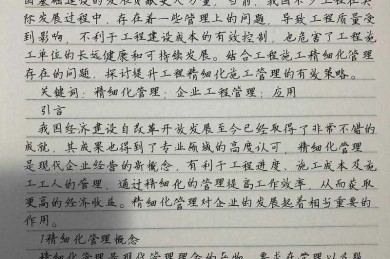 际发展过程中,存在着一些管理上的问题,导致工程质量受
到影响,不利于工程建设成本的有效控制,也危害了工程施
工单位的长远健康和可持续发展。结合工程施工精细化管理
存在的问题,探讨提升工程精细化施工管理的有效策略。
关键词:精细化管理;企业工程管理;应用
引言
我国经济建设自改革开放发展至今已经取得了非常不错的
成就,其成果也得到了专业领域的高度认可,精细化管理
是现代企业经营的新概念,有利于工程进度、施工成本及施
工工人的管理,通过精细化的管理提高工作效率,从而获取
更高的经济收益。精细化管理对企业的发展起着相当重要的
作用。
1精细化管理概念
精细化管理是现代管理理念的产物,要求在管理以及